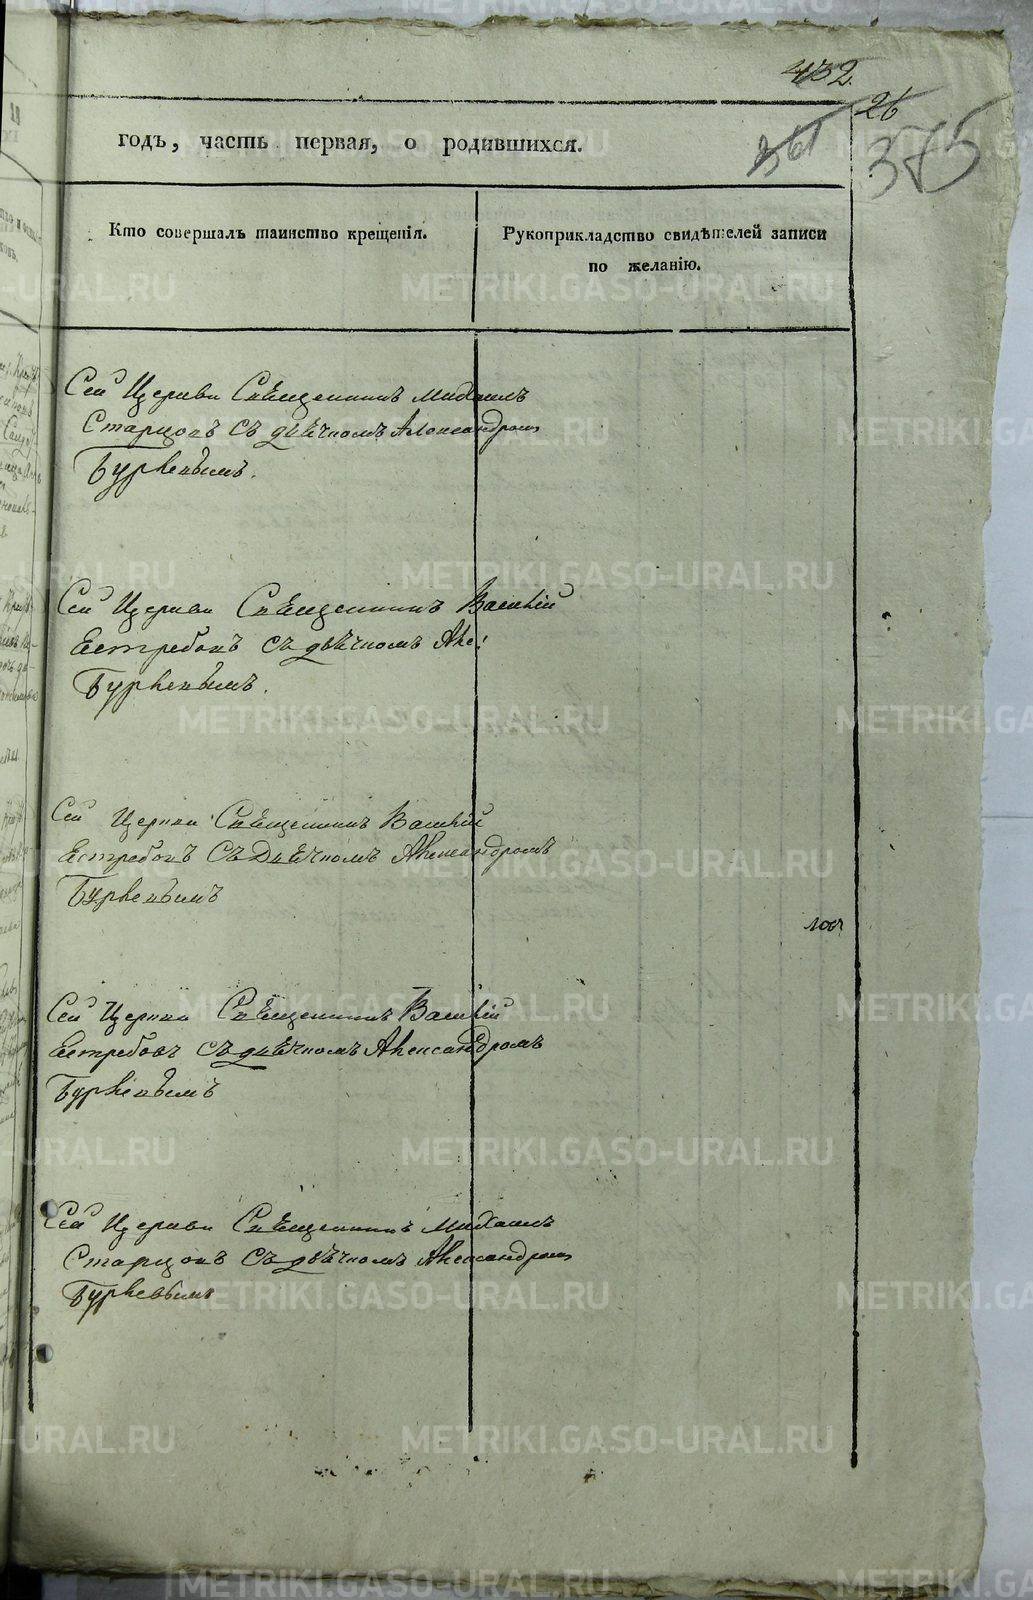 432
26
361
375
годъ, часть первая, о родившихся.
Кто совершалъ таинство крещенія.
Рукоприкладство свидѣтелей записи
по желанію.
Сей Церкви Священникъ Михаилъ
Старцовъ съ дьячкомъ Александромъ
Бурвевымъ.
Сей Церкви Священникъ Василій
Естребовъ съ дьячкомъ Але:
Бурвевымъ.
Сей Церкви Священникъ Василій
Естребовъ съ Дьячкомъ Александромъ
Бурвевымъ
Сей Церкви Священникъ Василій
Естребовъ съ дьячкомъ Александромъ
Бурвевымъ
Сей Церкви Священникъ Михаилъ
Старцовъ съ дьячкомъ Александромъ
Бурвевымъ
METRIKI.GASO-URAL.RU